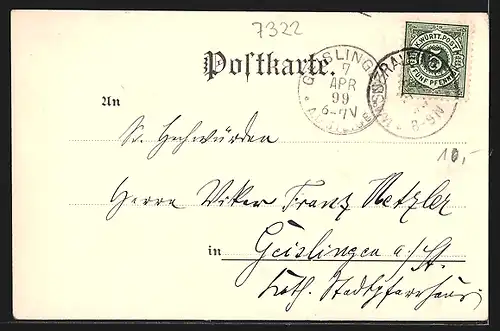 7322
K. WÜRTT. POST
5
FÜNF PFENNIG
GEISLINGEN
7
APR
99
6-7N
RAV
8-9N
Postkarte.
10,-
An
Sr. Hochwürden
Herrn Vikar Franz Metzler
in Geislingen a/St.
kath. Stadtpfarrhaus